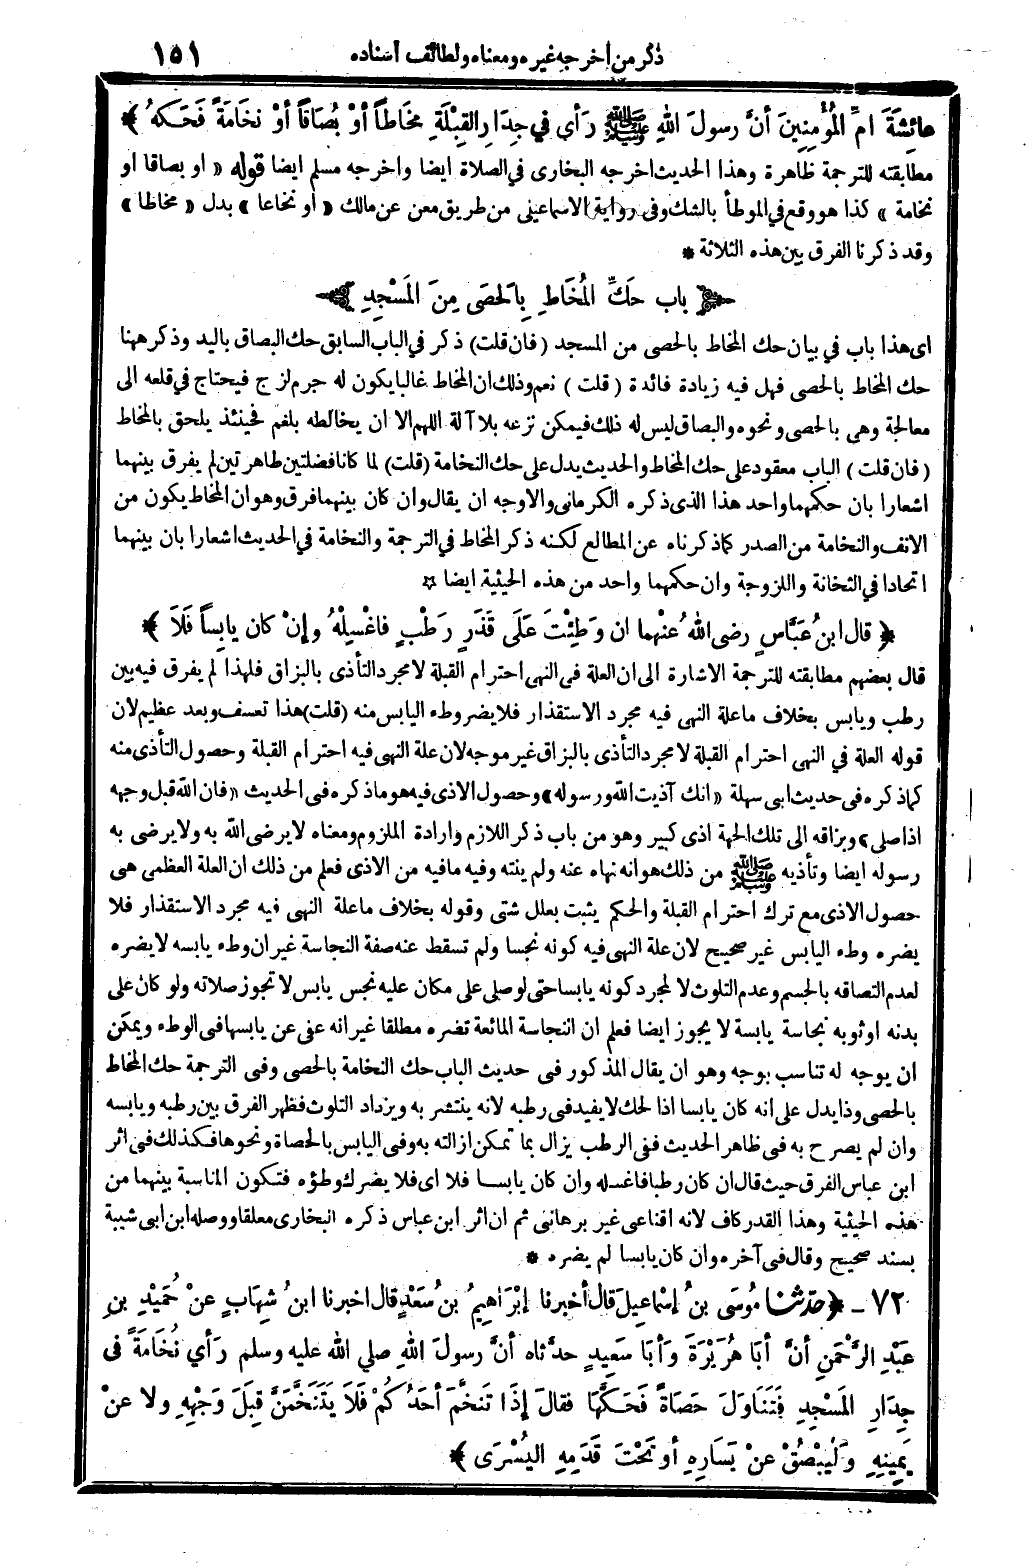 ذكر من أخرجه غيره ومعناه ولطائف اسناده ١٥١
عائِشَةَ امِّ الْمُؤْمِنِينَ أنَّ رسولَ اللهِ ﷺ رَأى في جِدَارِ القِبْلَةِ مخَاطاً أوْ بُصَاقاً أوْ نخَامَةً فَحَكهُ ﴾
مطابقته للترجمة ظاهرة وهذا الحديث اخرجه البخارى في الصلاة ايضا واخرجه مسلم ايضا قوله « او بصاقا او
نخامة » كذا هو وقع في الموطأ بالشك وفى رواية الاسماعيلى من طريق معن عن مالك « أو نخاعا » بدل « مخاطا »
وقد ذكرنا الفرق بين هذه الثلاثة *
باب حَكِّ المُخَاطِ بِالحَصَى مِنَ المَسْجِدِ
اى هذا باب في بيان حك المخاط بالحصى من المسجد ( فان قلت ) ذكر في الباب السابق حك البصاق باليد وذكر ههنا
حك المخاط بالحصى فهل فيه زيادة فائدة ( قلت ) نعم وذلك ان المخاط غالبا يكون له جرم لزج فيحتاج في قلعه الى
معالجة وهى بالحصى ونحوه والبصاق ليس له ذلك فيمكن نزعه بلا آلة اللهم الا ان يخالطه بلغم فحينئذ يلحق بالمخاط
( فان قلت ) الباب معقود على حك المخاط والحديث يدل على حك النخامة (قلت) لما كانا فضلتين طاهرتين لم يفرق بينهما
اشعارا بان حكمهما واحد هذا الذى ذكره الكرمانى والاوجه ان يقال وان كان بينهما فرق وهو ان المخاط يكون من
الانف والنخامة من الصدر كما ذكرناه عن المطالع لكنه ذكر المخاط في الترجمة والنخامة في الحديث اشعارا بان بينهما
اتحادا في الثخانة واللزوجة وان حكمهما واحد من هذه الحيثية ايضا ☆
﴿ قال ابنُ عَبَّاسٍ رضى اللهُ عنْهما ان وَطِئْتَ عَلَى قَذَرٍ رَطْبٍ فاغْسِلْهُ وإنْ كان يابِساً فَلَا ﴾
قال بعضهم مطابقته للترجمة الاشارة الى ان العلة فى النهى احترام القبلة لا مجرد التأذى بالبزاق فلهذا لم يفرق فيه بين
رطب ويابس بخلاف ما علة النهى فيه مجرد الاستقذار فلا يضر وطء اليابس منه (قلت) هذا تعسف وبعد عظيم لان
قوله العلة في النهى احترام القبلة لا مجرد التأذى بالبزاق غير موجه لان علة النهى فيه احترام القبلة وحصول التأذى منه
كما ذكره فى حديث ابى سهلة « انك آذيت الله ورسوله » وحصول الاذى فيه هو ما ذكره فى الحديث « فان الله قبل وجهه
اذا صلى » وبزاقه الى تلك الجهة اذى كبير وهو من باب ذكر اللازم وارادة الملزوم ومعناه لا يرضى الله به ولا يرضى به
رسوله ايضا وتأذيه ﷺ من ذلك هو انه نهاه عنه ولم ينته وفيه مافيه من الاذى فعلم من ذلك ان العلة العظمى هى
حصول الاذى مع ترك احترام القبلة والحكم يثبت بعلل شتى وقوله بخلاف ما علة النهى فيه مجرد الاستقذار فلا
يضره وطء اليابس غير صحيح لان علة النهى فيه كونه نجسا ولم تسقط عنه صفة النجاسة غير ان وطء يابسه لا يضره
لعدم التصاقه بالجسم وعدم التلوث لا لمجرد كونه يابسا حتى لو صلى على مكان عليه نجس يابس لا تجوز صلاته ولو كان على
بدنه او ثوبه نجاسة يابسة لا يجوز ايضا فعلم ان النجاسة المائعة تضره مطلقا غير انه عفى عن يابسها فى الوطء ويمكن
ان يوجه له تناسب بوجه وهو ان يقال المذكور فى حديث الباب حك النخامة بالحصى وفى الترجمة حك المخاط
بالحصى وذا يدل على انه كان يابسا اذا لحك لا يفيد فى رطبه لانه ينتشر به ويزداد التلوث فظهر الفرق بين رطبه ويابسه
وان لم يصرح به فى ظاهر الحديث ففى الرطب يزال بما تمكن ازالته به وفى اليابس بالحصاة ونحوها فكذلك فى اثر
ابن عباس الفرق حيث قال ان كان رطبا فاغسله وان كان يابسا فلا اى فلا يضرك وطؤه فتكون المناسبة بينهما من
هذه الحيثية وهذا القدر كاف لانه اقناعى غير برهانى ثم ان اثر ابن عباس ذكره البخارى معلقا ووصله ابن ابى شيبة
بسند صحيح وقال فى آخره وان كان يابسا لم يضره *
٧٢ - ﴿ حدّثنا مُوسَى بنُ إسْماعِيلَ قال أخبرنا إبْرَاهِيمُ بنُ سَعْدٍ قال اخبرنا ابنُ شِهَابٍ عنْ حُمَيْدِ بنِ
عَبْدِ الرَّحْمَنِ أنَّ أبَا هُرَيْرَةَ وَأبَا سَعِيدٍ حدَّثاه أنَّ رسولَ اللهِ صلى الله عليه وسلم رَأي نُخَامَةً فى
جِدَارِ المَسْجِدِ فَتَنَاوَلَ حَصَاةً فَحَكَّهَا فقالَ إذَا تَنَخَّمَ أحَدُكُمْ فَلَا يَتَنَخَّمَنَّ قِبَلَ وَجْهِهِ ولا عنْ
يَمِينِهِ وَلْيَبْصُقْ عنْ يَسَارِهِ أو تَحْتَ قَدَمِهِ اليُسْرَى ﴾